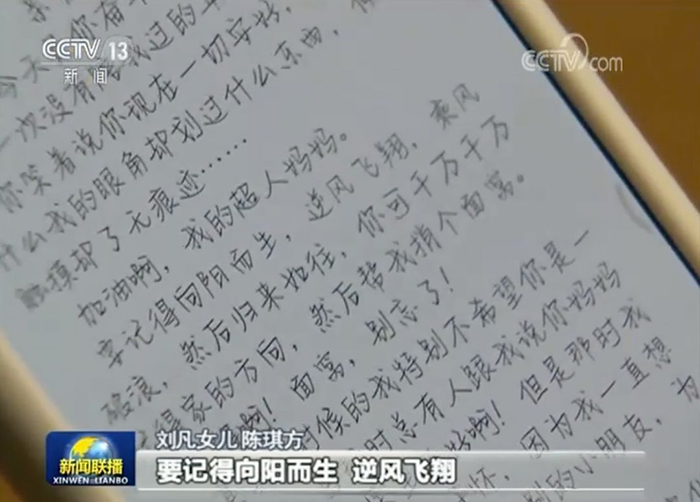 CCTV 13
新闻
CCTV.com
今天
一次没有
过的
你笑着说你现在一切安好，
什么我的眼角却划过什么东西，
触摸却了无痕迹……
加油啊，我的超人妈妈。
要记得向阳而生，逆风飞翔，乘风
破浪，然后归来如往，你可千万千万
得家的方向，然后帮我捎个面窝。
啊！面窝，别忘了！
时候的我特别不希望你是一
时总有人跟我说你妈妈
啊！但是那时我
怀，因为我一直想
的小朋友，为
刘凡女儿 陈琪方
新闻联播
XINWEN LIANBO
要记得向阳而生 逆风飞翔